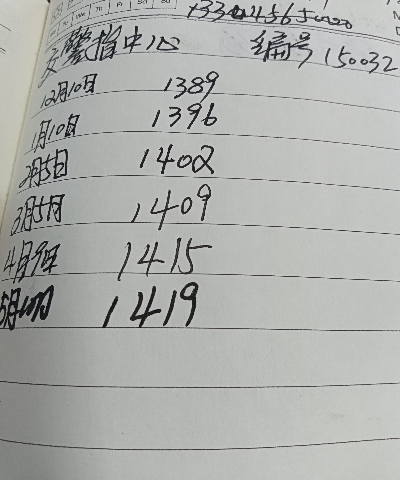 交警指中心 编号150032
12月10日 1389
1月10日 1396
2月5日 1402
3月5日 1409
4月9日 1415
5月10日 1419